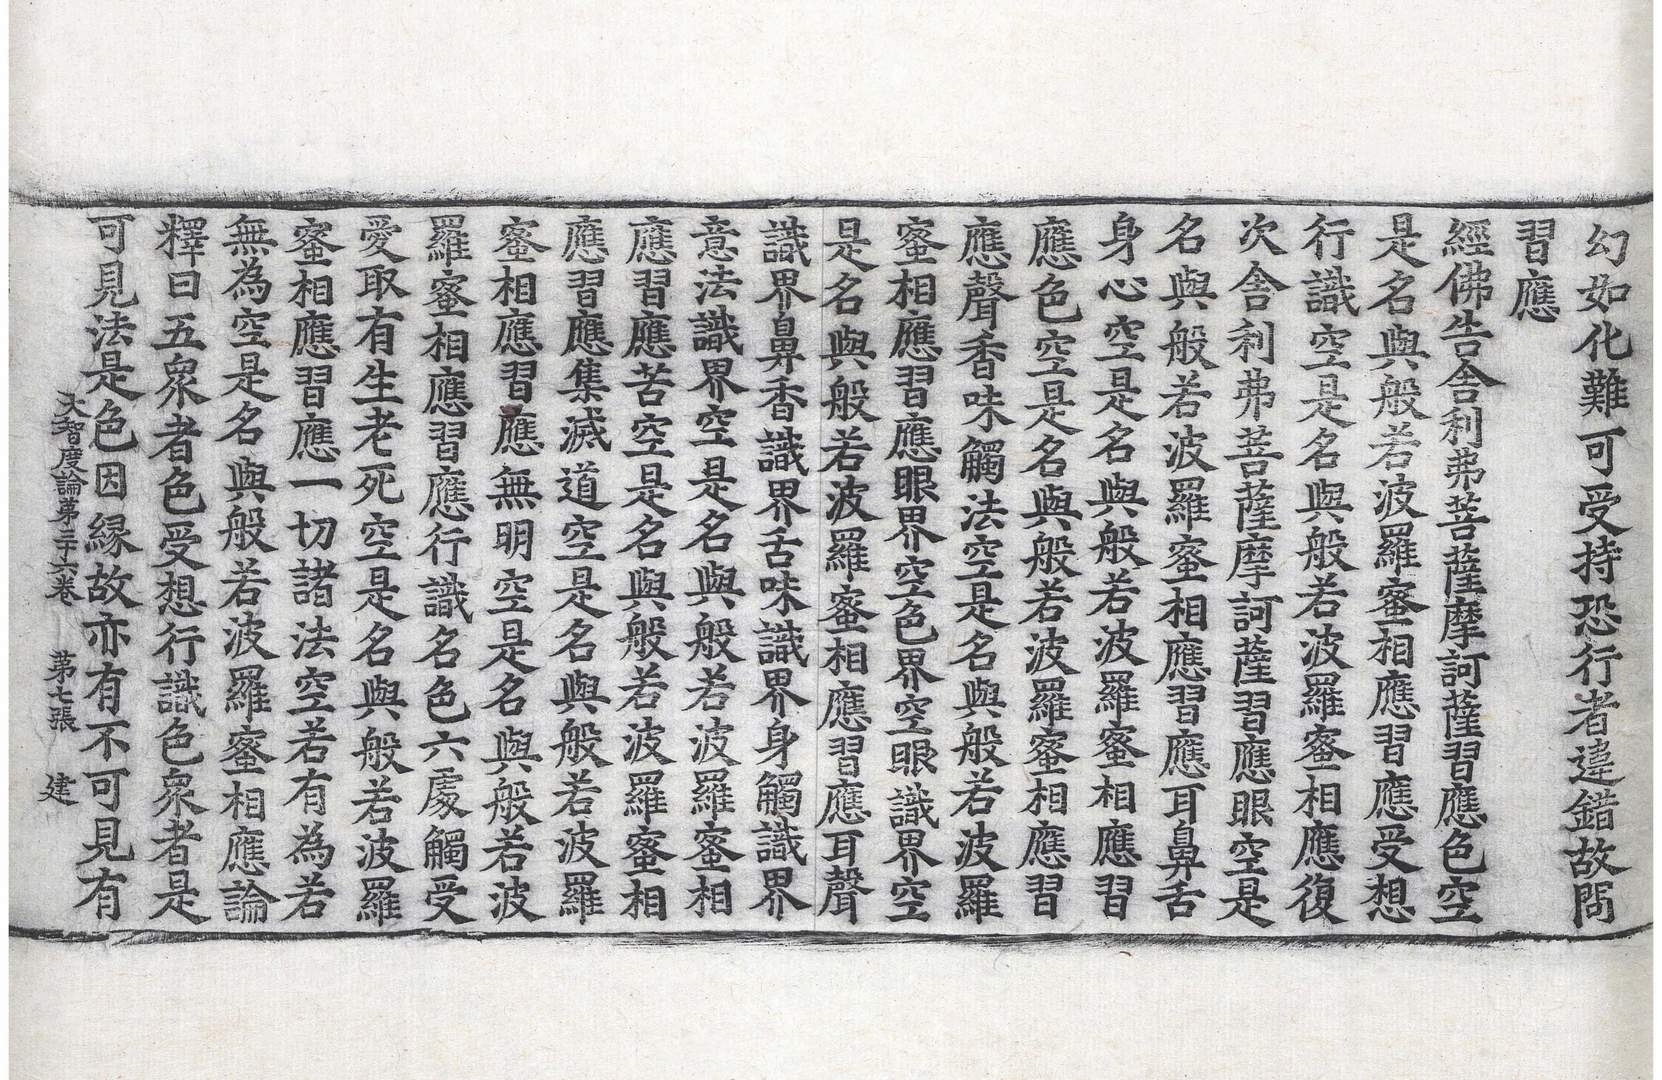 幻如化難可受持恐行者違錯故問
習應
經佛告舍利弗菩薩摩訶薩習應色空
是名與般若波羅蜜相應習應受想
行識空是名與般若波羅蜜相應復
次舍利弗菩薩摩訶薩習應眼空是
名與般若波羅蜜相應習應耳鼻舌
身心空是名與般若波羅蜜相應習
應色空是名與般若波羅蜜相應習
應聲香味觸法空是名與般若波羅
蜜相應習應眼界空色界空眼識界空
是名與般若波羅蜜相應習應耳聲
識界鼻香識界舌味識界身觸識界
意法識界空是名與般若波羅蜜相
應習應苦空是名與般若波羅蜜相
應習應集滅道空是名與般若波羅
蜜相應習應無明空是名與般若波
羅蜜相應習應行識名色六處觸受
愛取有生老死空是名與般若波羅
蜜相應習應一切諸法空若有為若
無為空是名與般若波羅蜜相應論
釋曰五衆者色受想行識色衆者是
可見法是色因緣故亦有不可見有
大智度論第三十六卷 第七張 建